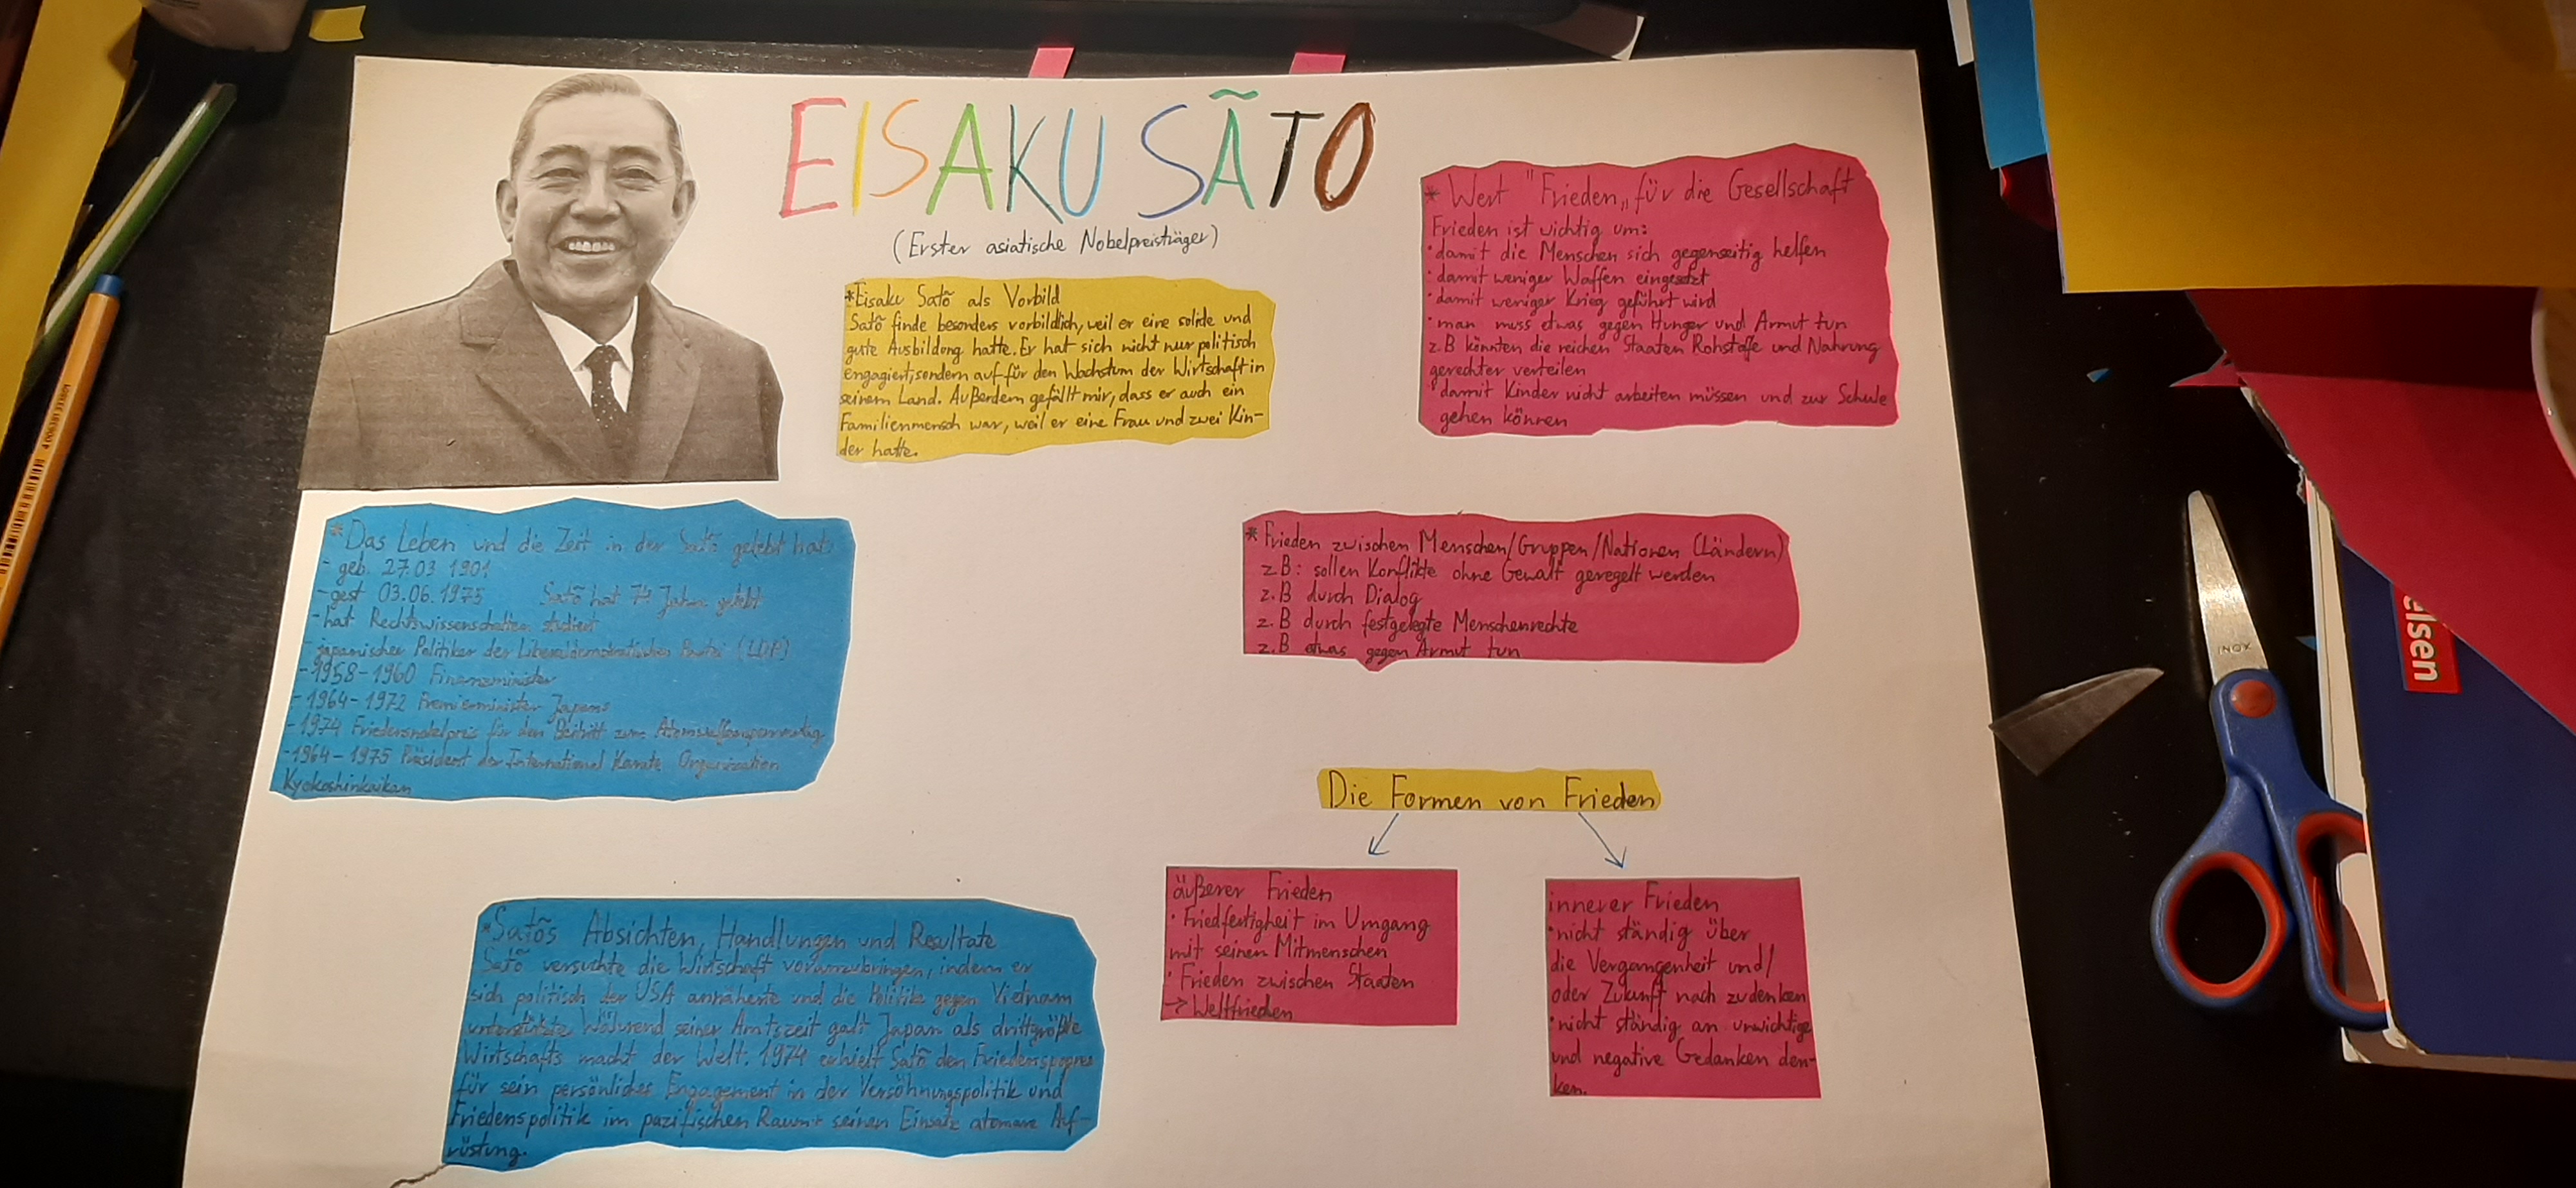 EISAKU SÃTO
(Erster asiatische Nobelpreisträger)
*Eisaku Satõ als Vorbild
Satõ finde besonders vorbildlich, weil er eine solide und
gute Ausbildung hatte. Er hat sich nicht nur politisch
engagiert, sondern auf für den Wachstum der Wirtschaft in
seinem Land. Außerdem gefällt mir, dass er auch ein
Familienmensch war, weil er eine Frau und zwei Kin-
der hatte.
* Wert "Frieden„ für die Gesellschaft
Frieden ist wichtig um:
· damit die Menschen sich gegenseitig helfen
· damit weniger Waffen eingesetzt
· damit weniger Krieg geführt wird
· man muss etwas gegen Hunger und Armut tun
z.B könnten die reichen Staaten Rohstoffe und Nahrung
gerechter verteilen
· damit Kinder nicht arbeiten müssen und zur Schule
gehen können
* Das Leben und die Zeit in der Satõ gelebt hat
- geb. 27.03 1901
- gest 03.06.1975 Satõ hat 74 Jahre gelebt
- hat Rechtswissenschaften studiert
- japanischer Politiker der Liberaldemokratischen Partei (LDP)
- 1958-1960 Finanzminister
- 1964-1972 Premierminister Japans
- 1974 Friedensnobelpreis für den Beitritt zum Atomwaffensperrvertrag
- 1964-1975 Präsident der International Karate Organization
Kyokoshinkaikan
* Frieden zwischen Menschen/Gruppen/Nationen (Ländern)
z.B: sollen Konflikte ohne Gewalt geregelt werden
z.B durch Dialog
z.B durch festgelegte Menschenrechte
z.B etwas gegen Armut tun
*Satõs Absichten, Handlungen und Resultate
Satõ versuchte die Wirtschaft voranzubringen, indem er
sich politisch der USA annäherte und die Politik gegen Vietnam
unterstützte Während seiner Amtszeit galt Japan als drittgrößte
Wirtschafts macht der Welt. 1974 erhielt Satõ den
für sein persönliches Engagement in der Versöhnungspolitik und
Friedenspolitik im pazifischen Raum+ seinen Einsatz atomare Auf-
rüstung.
Die Formen von Frieden
äußerer Frieden
· Friedfertigheit im Umgang
mit seinen Mitmenschen
· Frieden zwischen Staaten
→ Weltfrieden
innerer Frieden
· nicht ständig über
die Vergangenheit und/
oder Zukunft nach zudenken
· nicht ständig an unwichtige
und negative Gedanken den-
ken.
INOX
elsen